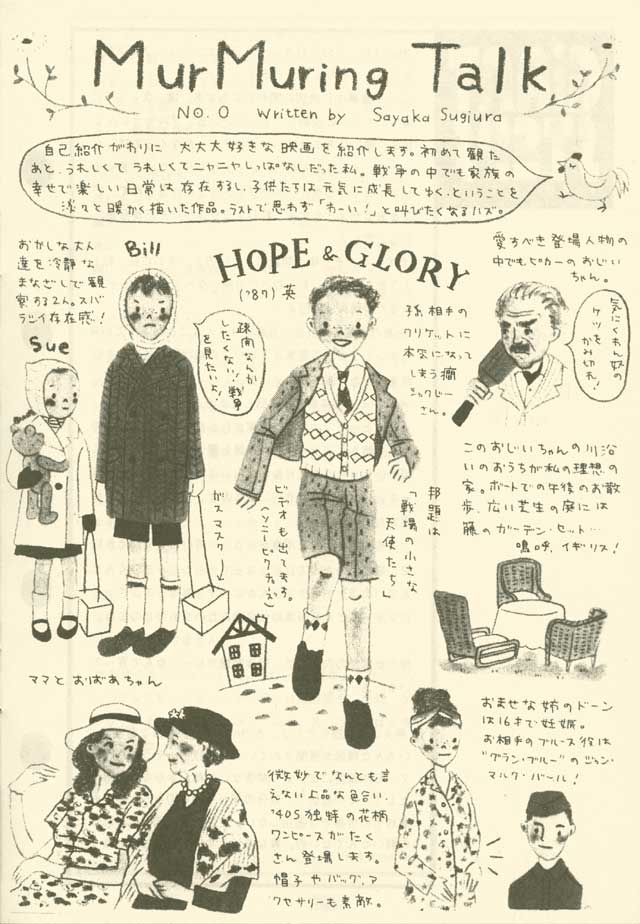 MurMuring Talk
NO. 0 Written by Sayaka Sugiura
自己紹介がわりに 大大大好きな映画を紹介します。初めて観た
あと、うれしくてうれしくてニャニヤしっぱなしだった私。戦争の中でも家族の
幸せで楽しい日常は存在するし、子供たちは元気に成長してゆく、ということを
淡々と暖かく描いた作品。ラストで思わず「わーい!」と叫びたくなるハズ。
おかしな大人
達を冷静な
まなざしで観
察する2人。スバ
ラシイ存在感!
Bill
Sue
疎開なんか
したくない!戦争
を見たいよ!
HOPE & GLORY
('87) 英
孫相手の
クリケットに
本気になって
しまう癇
シャクじー
さん。
愛すべき登場人物の
中でもピカ一のおじい
ちゃん。
気にくわん奴の
ケツをかみ切れ!
このおじいちゃんの川沿
いのおうちが私の理想の
家。ボートでの午後のお散
歩、広い芝生の庭には
籐のガーデン・セット…
嗚呼、イギリス!
邦題は
「戦場の小さな
天使たち」
ビデオも出てます。
(ソニーピクチャーズ)
ガスマスク→
ママと おばあちゃん
微妙でなんとも言
えない上品な色合い、
'40S独特の花柄
ワンピースがたく
さん登場します。
帽子やバッグ、ア
クセサリーも素敵。
おませな姉のドーン
は16才で妊娠。
お相手のブルース役は
"グラン・ブルー"のジャン・
マルク・バール!